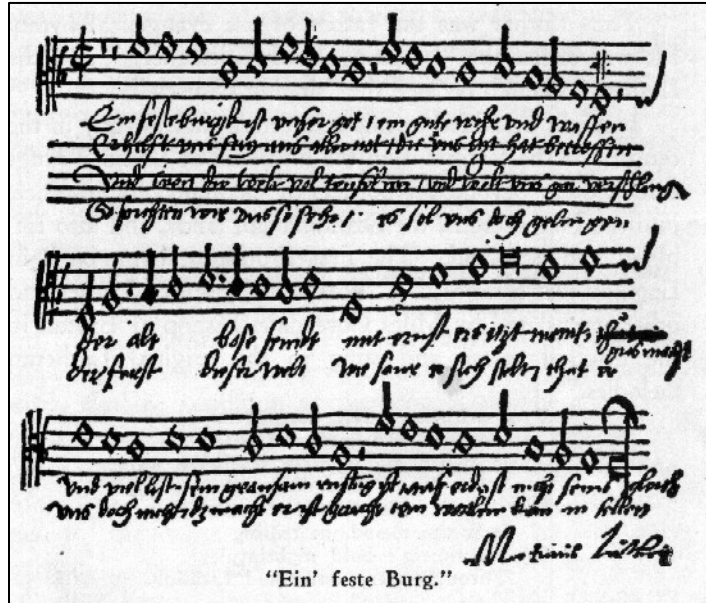 Ein feste burgk ist unser got / ein gute wehr und waffen
Er hilfft uns frey aus aller not / die uns itzt hat betroffen
Und wen die welt vol teufel wer / und wolt uns gar verschlingen
So furchten wir uns so sehr / es sol uns doch gelingen
Der alt bose feindt mit ernst ers itzt meint
gros macht
der furst dieser welt wie saur er sich stelt / that er
und viel list sein grausam rustung ist auf erd ist nicht seins gleich
uns doch nicht / macht er ist gericht ein wortlein kan in fellen
Martinus Luther
"Ein' feste Burg."